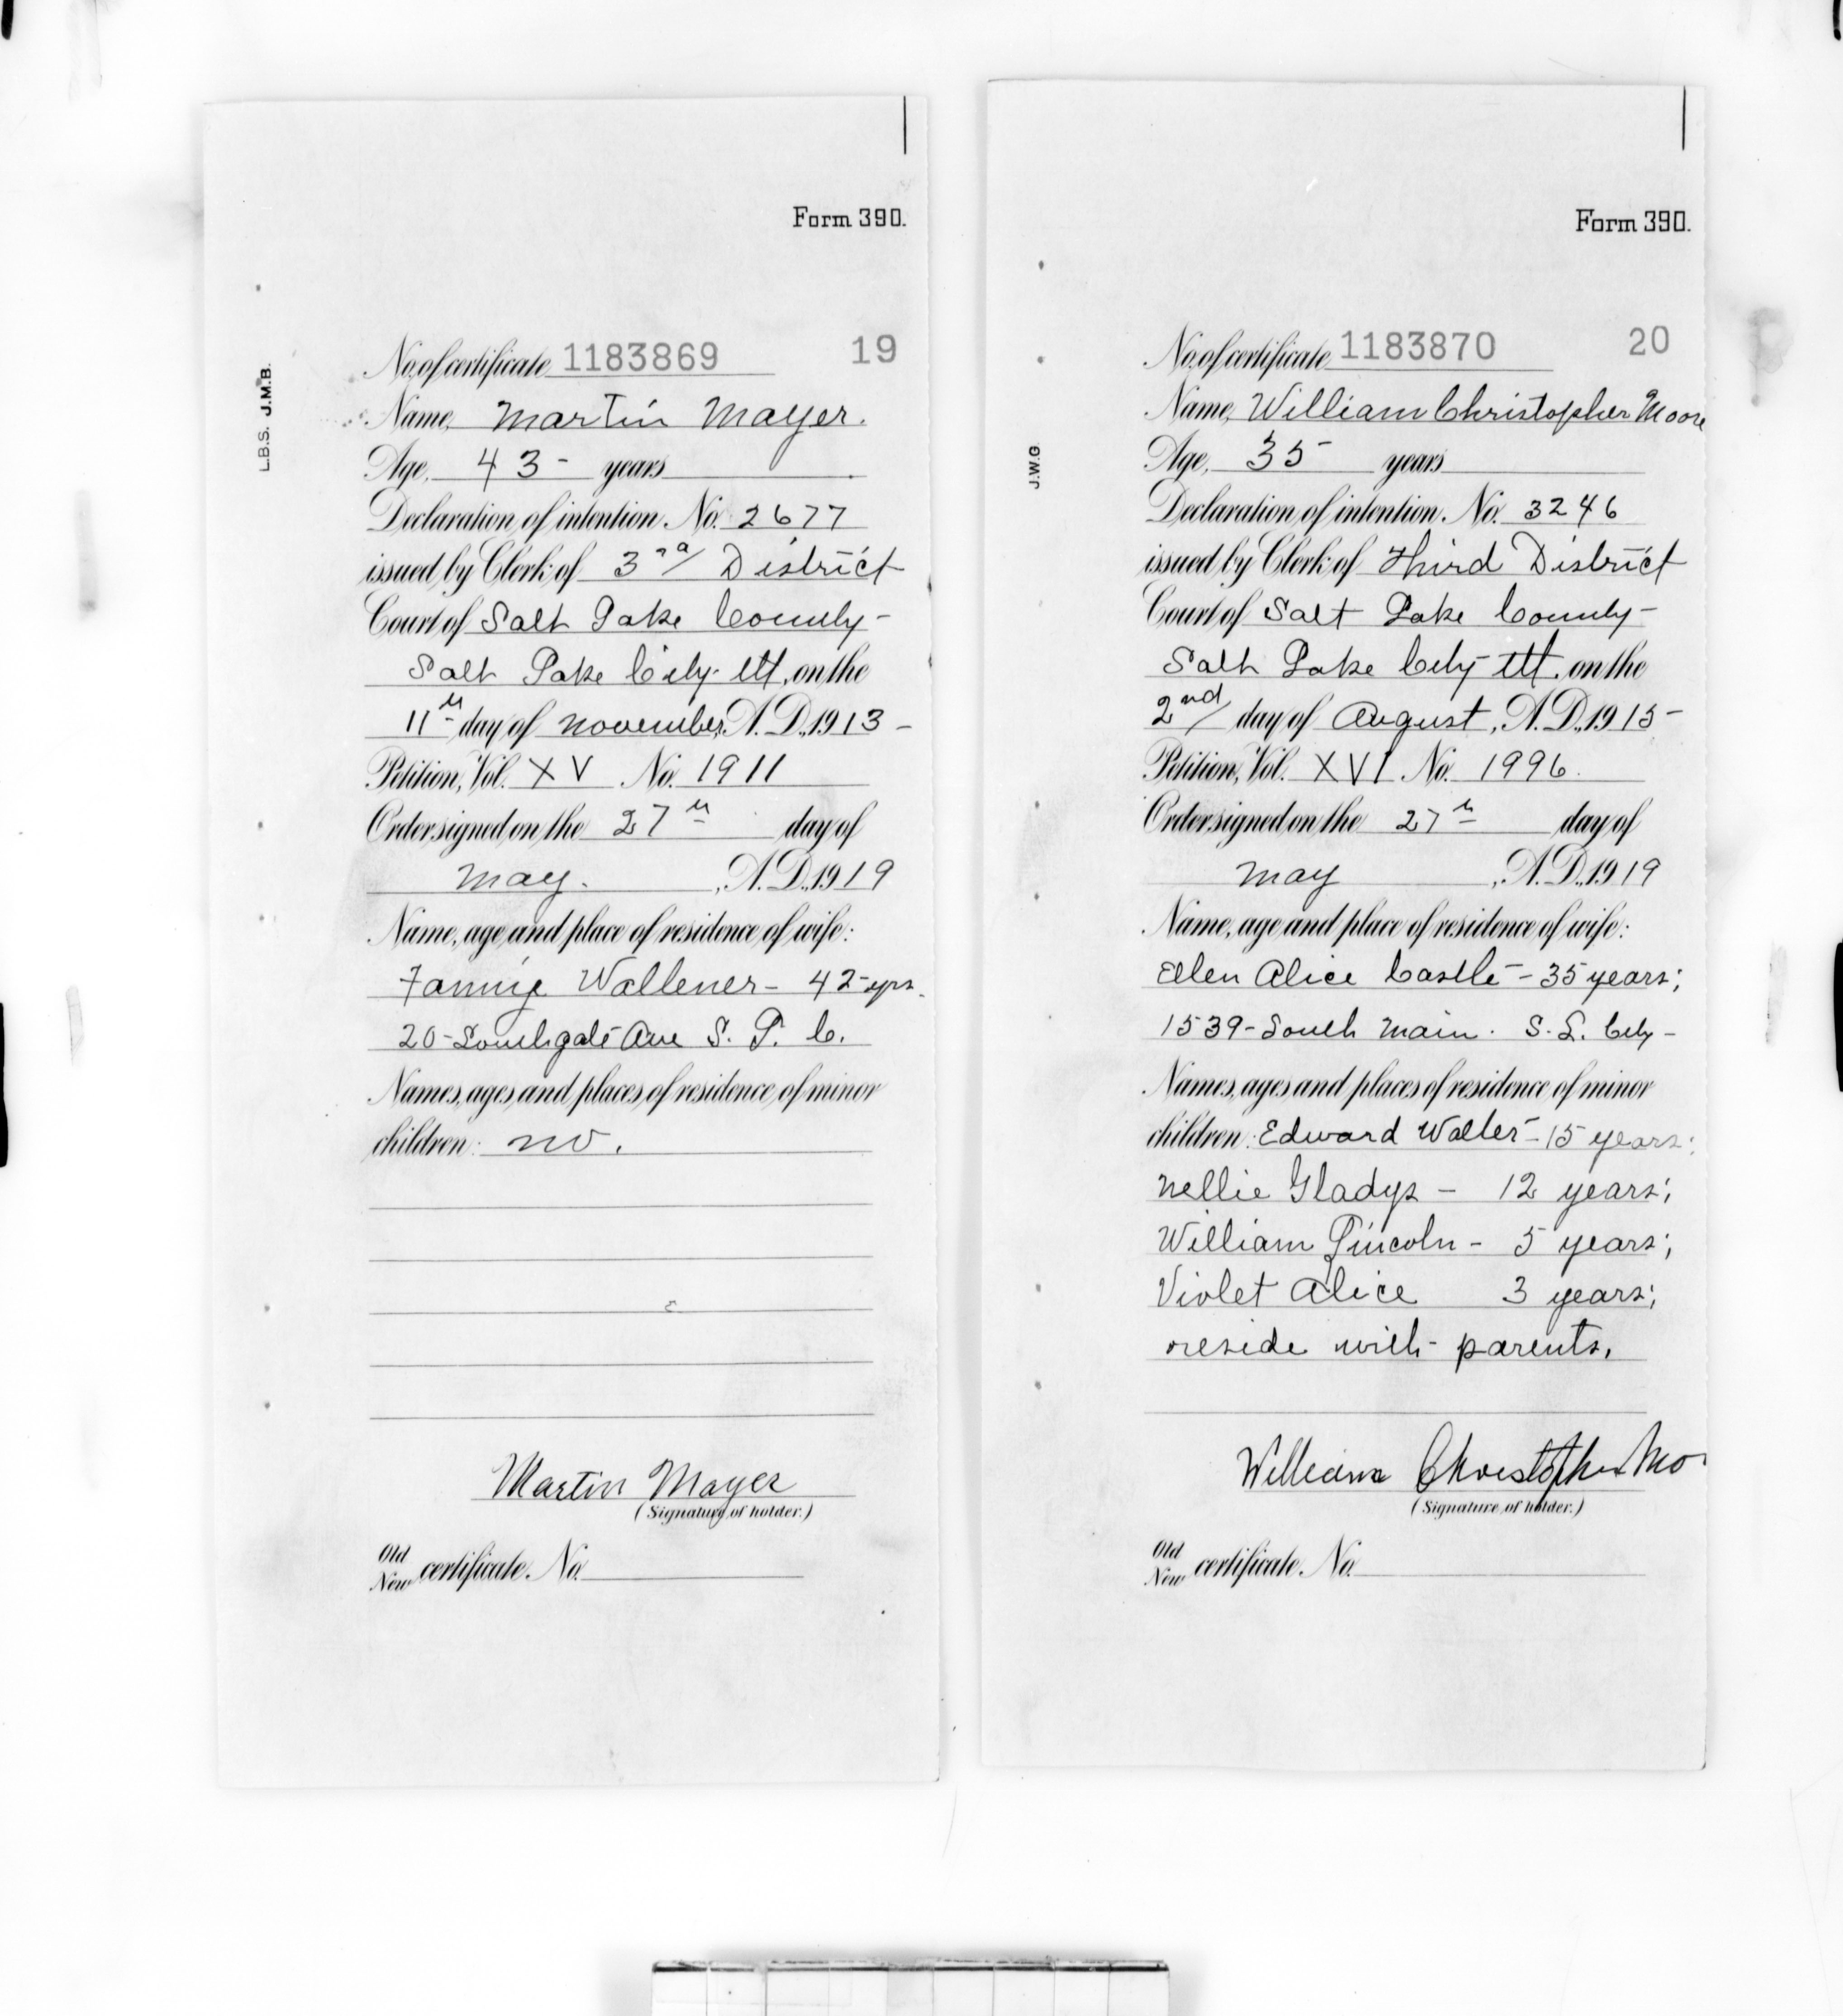 Form 390.
L.B.S. J.M.B.
No. of certificate 1183869 19
Name, Martin Mayer.
Age, 43- years
Declaration of intention, No. 2677
issued by Clerk of 3rd District
Court of Salt Lake County-
Salt Lake City Ut, on the
11th day of November, A.D., 1913-
Petition, Vol. XV No. 1911
Order signed on the 27th day of
May. , A.D., 1919
Name, age and place of residence of wife:
Fannie Wallener- 42-yrs.
20-Southgate Ave S. L. C.
Names, ages and places of residence of minor
children: no.
Martin Mayer
(Signature of holder.)
Old
New certificate, No.
Form 390.
J.W.G.
No. of certificate 1183870 20
Name, William Christopher Moore
Age, 35- years
Declaration of intention, No. 3246
issued by Clerk of Third District
Court of Salt Lake County-
Salt Lake City Ut. on the
2nd day of August, A.D., 1915-
Petition, Vol. XVI No. 1996.
Order signed on the 27th day of
May , A.D., 1919
Name, age and place of residence of wife:
Ellen Alice Castle - 35 years;
1539-South Main. S. L. City-
Names, ages and places of residence of minor
children: Edward Walter-15 years;
Nellie Gladys - 12 years;
William Lincoln- 5 years;
Violet Alice 3 years;
reside with parents.
William Christopher Mo
(Signature of holder.)
Old
New certificate, No.